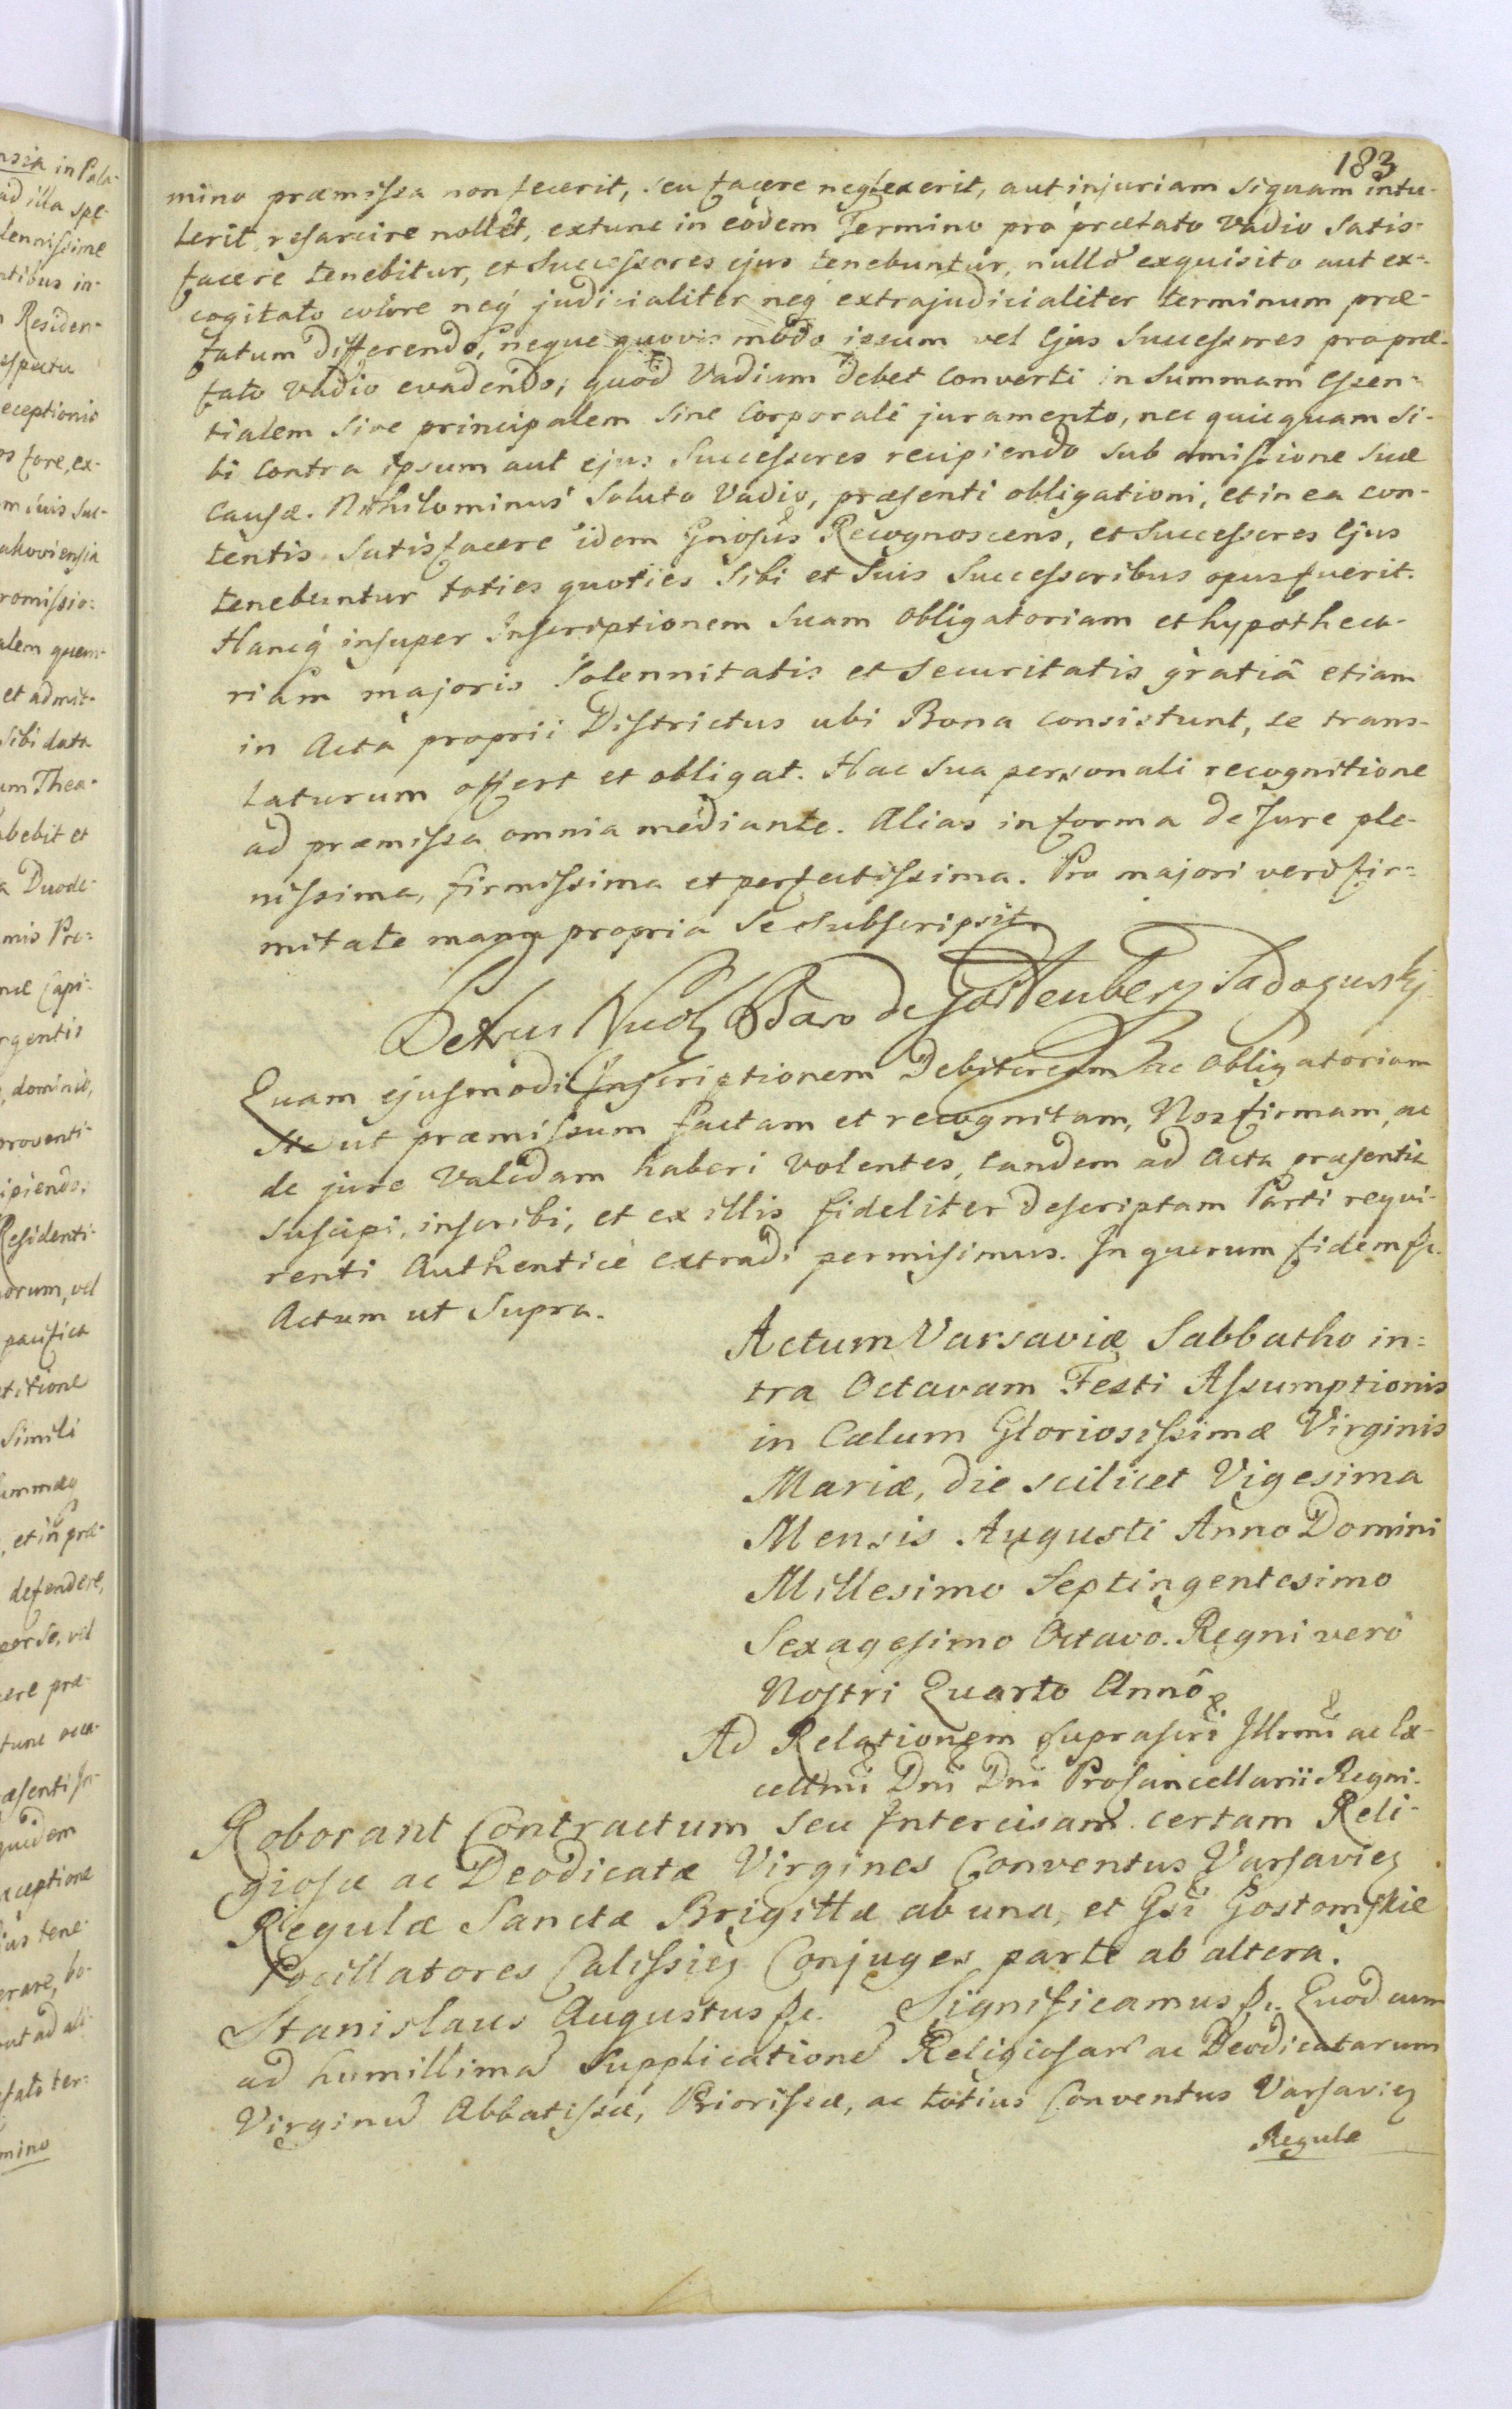 183
mino præmissa non fecerit, seu facere neglexerit, aut injuriam siquam intu-
lerit, resarcire nollêt, extunc in eôdem Termino pro prætato Vadio Satis-
facere tenebitur, et Successores ejus tenebuntur, nullô exquisito aut ex-
cogitato colore neq́ judicialiter neq́ extrajudicialiter terminum præ-
fatum differendo, neque quovis môdo ipsum vel Ejus Successores pro præ-
fato Vadio evadendo; quod Vadium debet Converti in Summam Essen-
tialem sive principalem sine Corporali juramento, nec quicquam Si-
bi Contra ipsum aut ejus Successores recipiendo sub amissione Suæ
Causæ. Nihilominus Soluto Vadio, præsenti obligationi, et in ea con-
tentis Satisfacere idem Gnosus Recognoscens, et Successores Ejus
tenebuntur toties quoties Sibi et Suis Successoribus opus fuerit.
Hancq́ insuper Inscriptionem Suam Obligatoriam et hypotheca-
riam majoris Solennitatis et Securitatis gratiâ etiam
in Acta proprii Districtus ubi Bona consistunt, se trans-
laturum offert et obligat. Hac Sua personali recognitione
ad præmissa omnia mediante. Alias in forma de Jure ple-
nissima, firmissima et perfectissima. Pro majori verô fir-
mitate manu propria Se Subscripsit.
Petrus Baro de Sadogurskj
Quam ejusmodi Inscriptionem Debitoream ac Obligatoriam
ut præmissum factam et recognitam, Nos firmam, ac
de jure Validam haberi Volentes, eandem ad Acta præsentia
suscipi, inscribi, et ex illis fideliter descriptam Parti requi-
renti Authenticè extradi permisimus. In quorum fidem &c.
Actum ut Supra.
Actum Varsaviæ Sabbatho in-
tra Octavam Festi Assumptionis
in Cælum Gloriosissimæ Virginis
Mariæ, die scilicet Vigesima
Mensis Augusti Anno Domini
Millesimo Septingentesimo
Sexagesimo Octavo. Regni verò
Nostri Quarto Annô
Ad Relationem suprascri Illrmi ac Ex-
cellmi Dni Dni ProCancellarii Regni.
Roborant Contractum seu Intercisam certam Reli-
giosæ ac Deodicatæ Virgines Conventus Varsavien
Regulæ Sanctæ Brigittæ ab una, et Gsi Gostomskie
Pocillatores Calissien Conjuges parte ab altera.
Stanislaus Augustus &c. Significamus &c. Quod cum
ad humillimam Supplicationem Religiosar ac Deodicatarum
Virginum Abbatissæ, Priorissæ, ac totius Conventus Varsavien
Regulæ